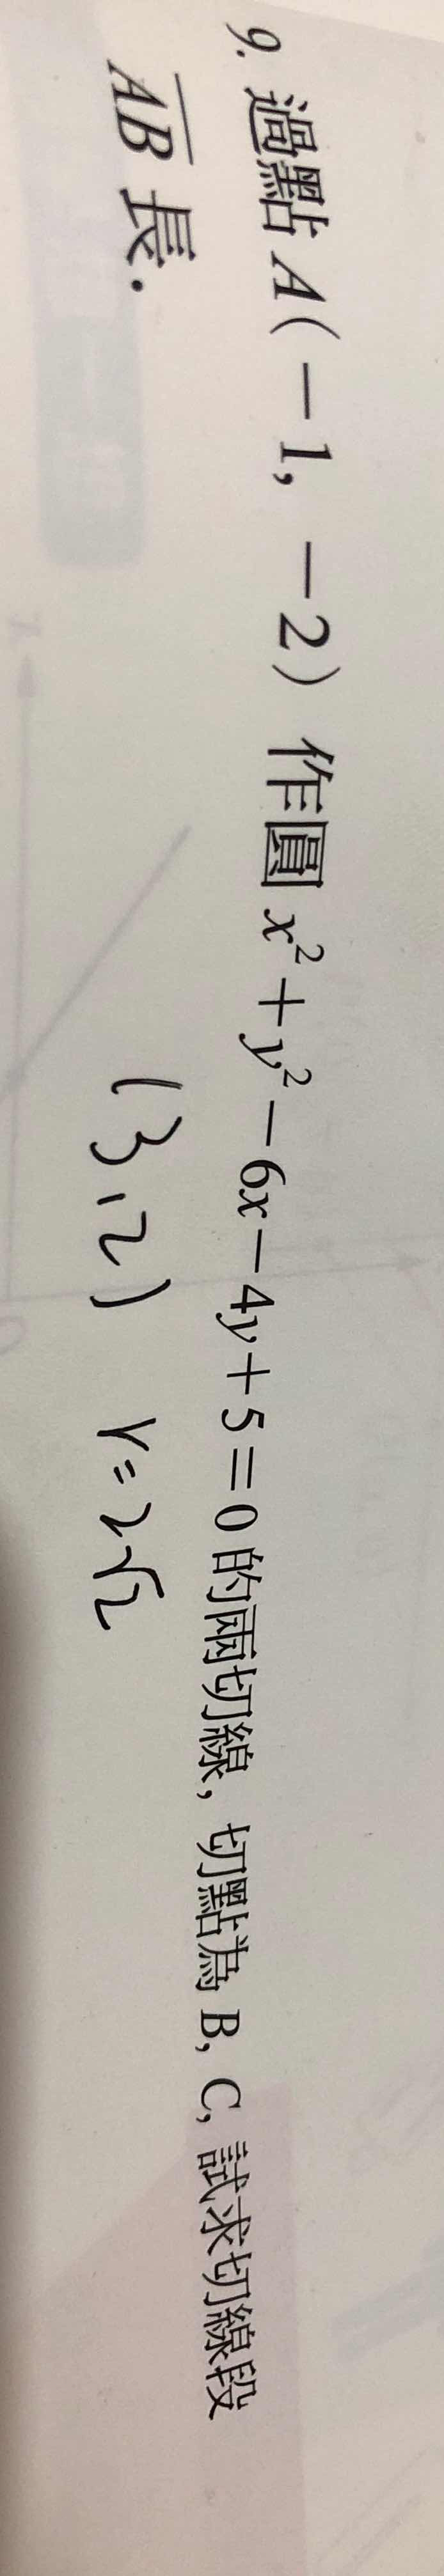 9. 過點 A(−1, −2) 作圓 x²+y²−6x−4y+5=0 的兩切線, 切點為 B, C, 試求切線段
A̅B̅ 長.
(3,2) r=2√2